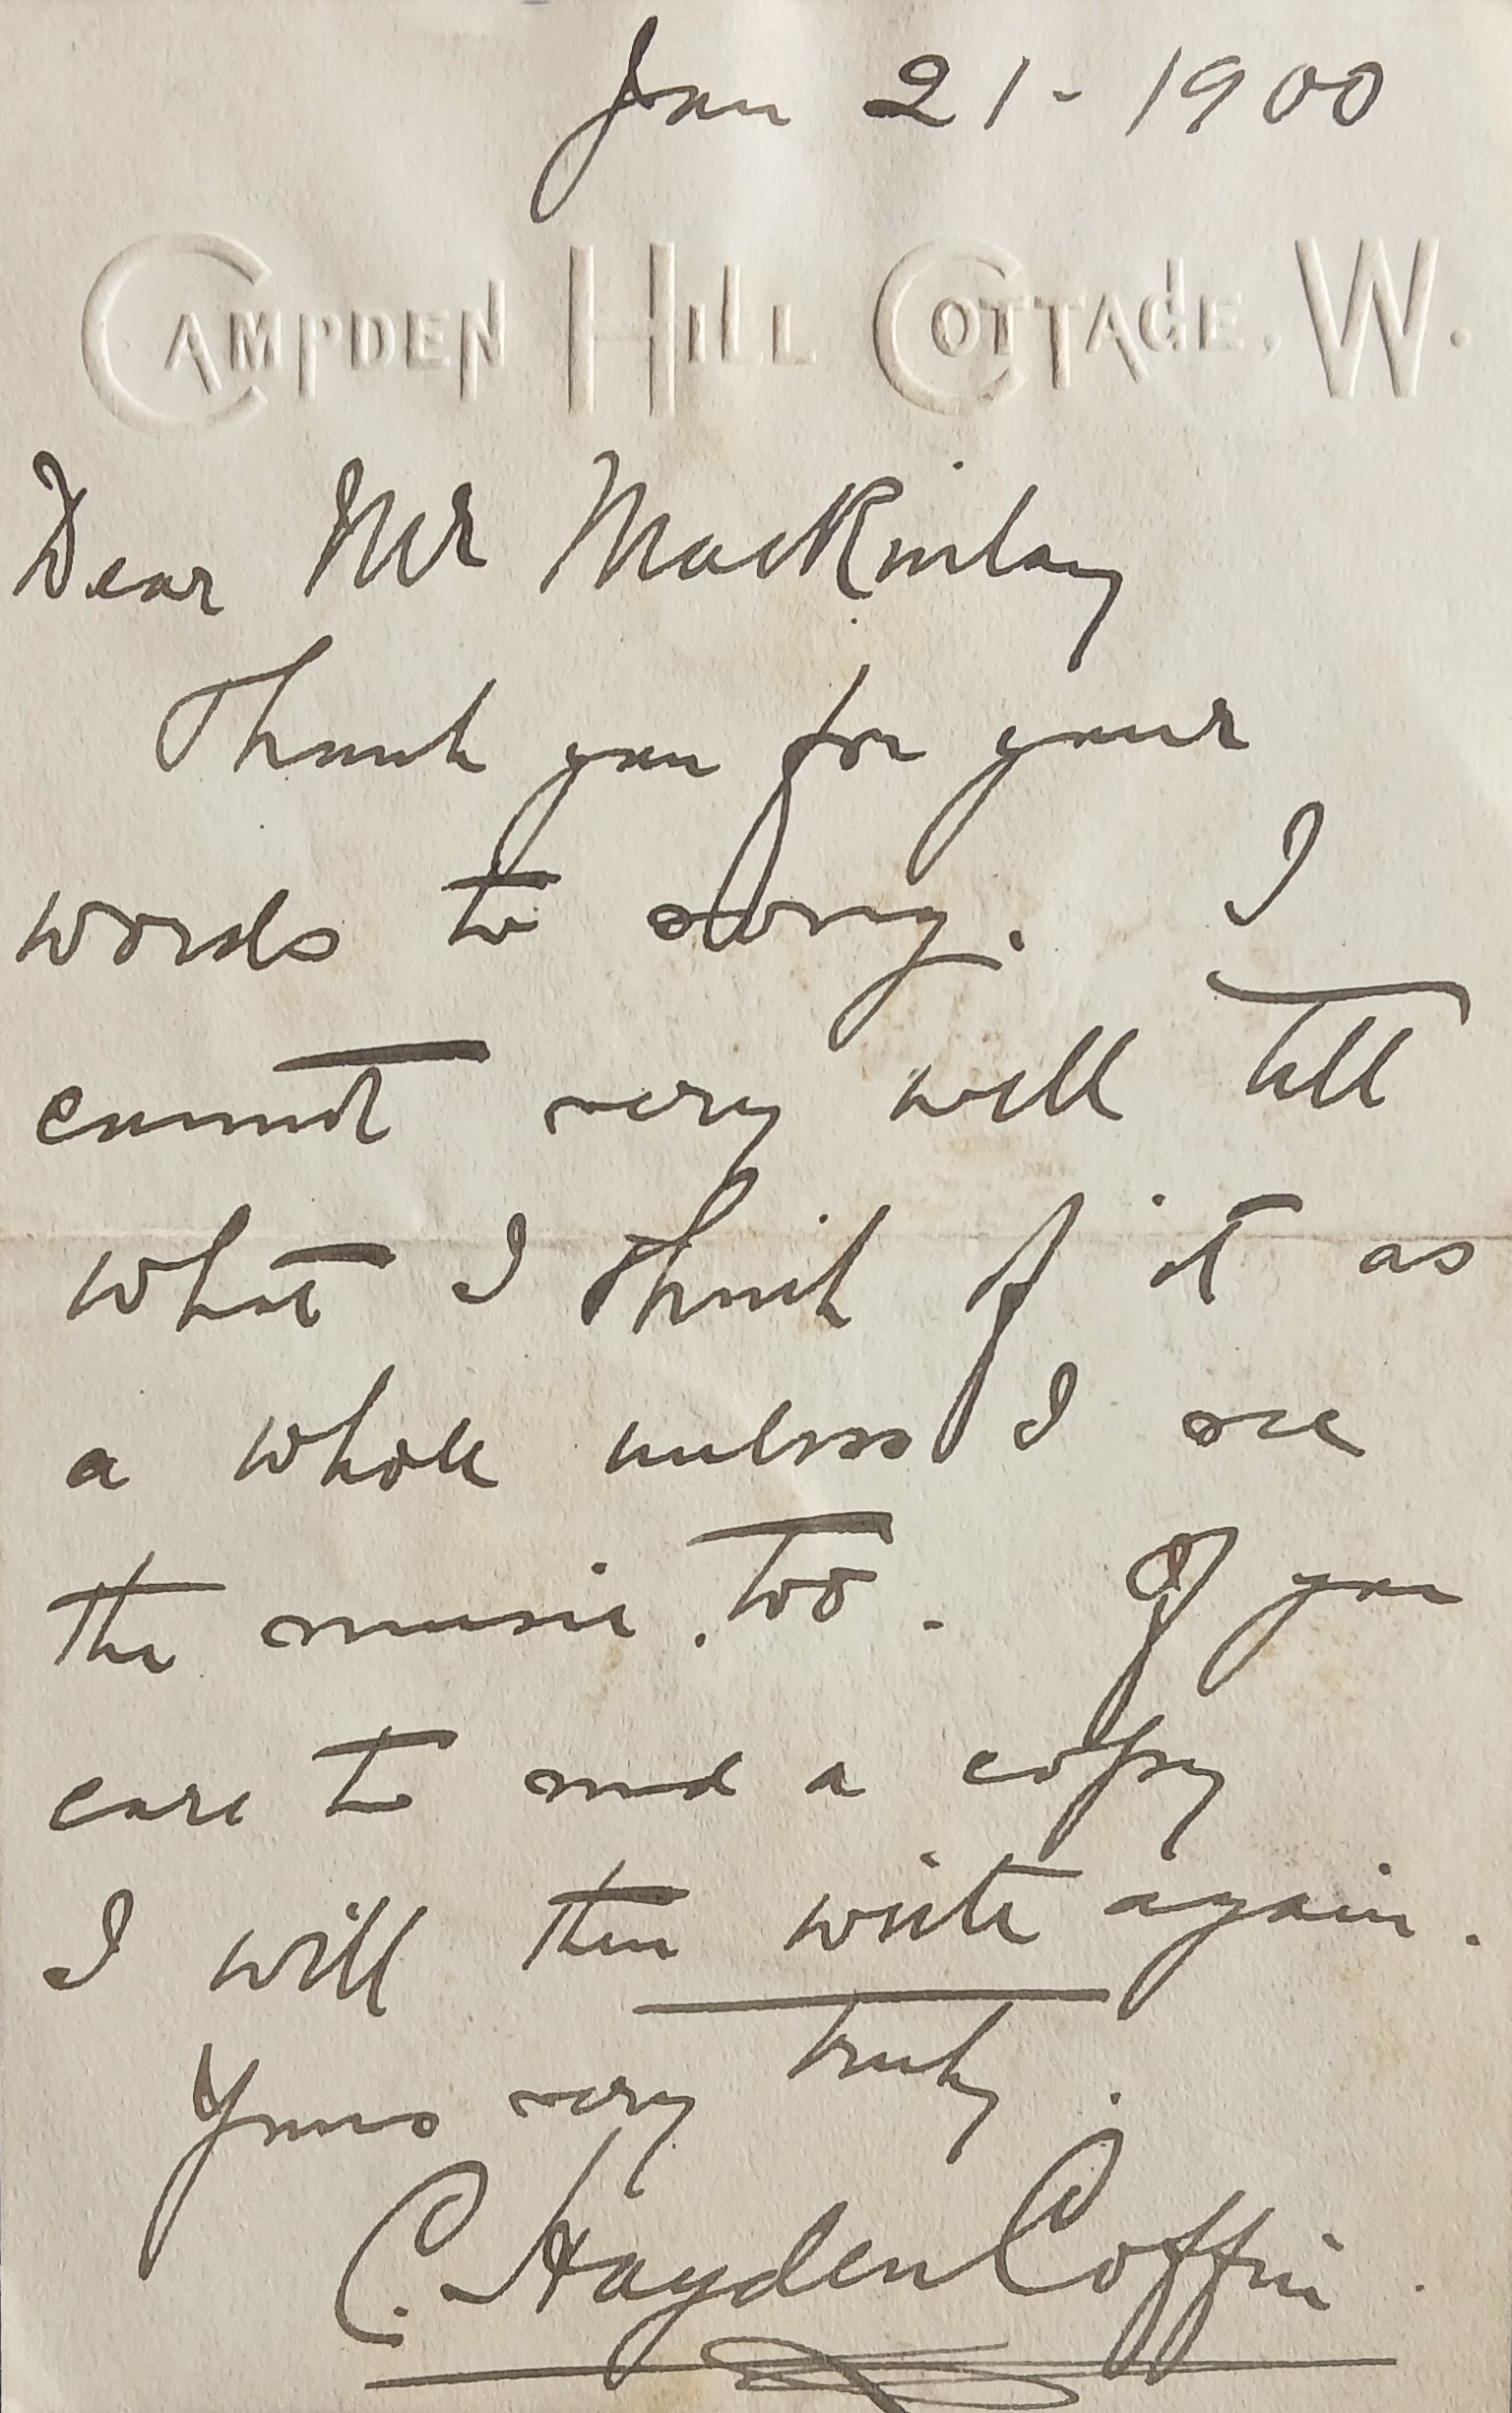 Jan 21 - 1900
CAMPDEN HILL COTTAGE. W.
Dear Mr MacKinlay
Thank you for your
words to song. I
cannot very well tell
what I think of it as
a whole unless I see
the music too. If you
care to send a copy
I will then write again.
Yours very truly.
C. Hayden Coffin.